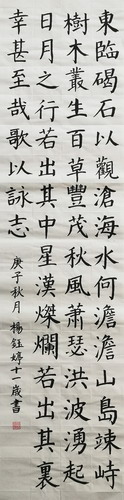 東臨碣石以觀滄海水何澹澹山島竦峙
樹木叢生百草豐茂秋風蕭瑟洪波湧起
日月之行若出其中星漢燦爛若出其裏
幸甚至哉歌以詠志
庚子秋月楊鈺婷十一歲書